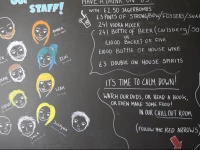 OUR
STAFF!
HAVE A DRINK ON US
WITH £2.50 JAGERBOMBS
£3 PINTS OF STRONGBOW/FOSTERS/
241 VODKA MIXER
241 BOTTLE OF BEER (CARLSBERG/SOL
OR
£1000 BUCKET OF FIZZ
£800 BOTTLE OF HOUSE WINE
OR
£3 DOUBLE ON HOUSE SPIRITS
IT'S TIME TO CALM DOWN!
WATCH OUR DVDS, OR READ A BOOK,
OR EVEN MAKE SOME FOOD!
IN OUR CHILLOUT ROOM
(FOLLOW THE RED ARROWS)